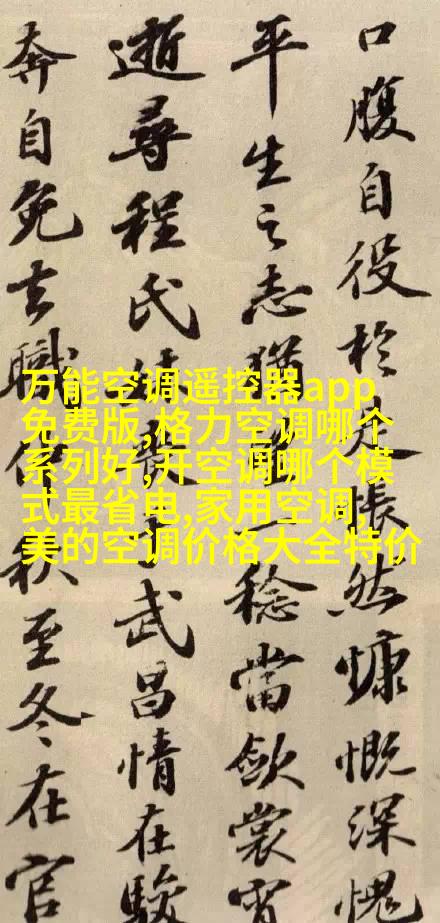 口腹自役於是悵然慷慨深愧
平生之志猶一稔當斂裳宵
逝尋程氏武昌情在駿
奔自免去職秋至冬在官
万能空调遥控器app
免费版,格力空调哪个
系列好,开空调哪个模
式最省电,家用空调,
美的空调价格大全特价